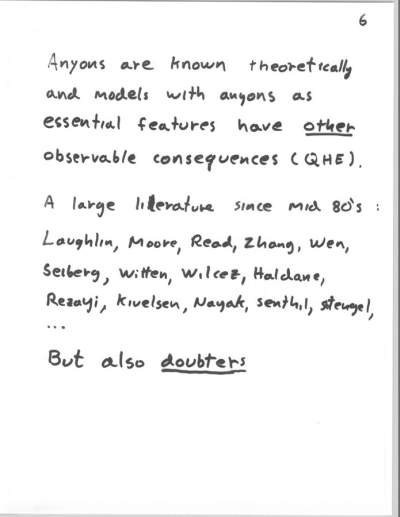 6
Anyons are known theoretically
and models with anyons as
essential features have other
observable consequences (QHE).
A large literature since mid 80's :
Laughlin, Moore, Read, Zhang, Wen,
Seiberg, Witten, Wilcez, Haldane,
Rezayi, Kivelsen, Nayak, Senthil, Stengel,
...
But also doubters